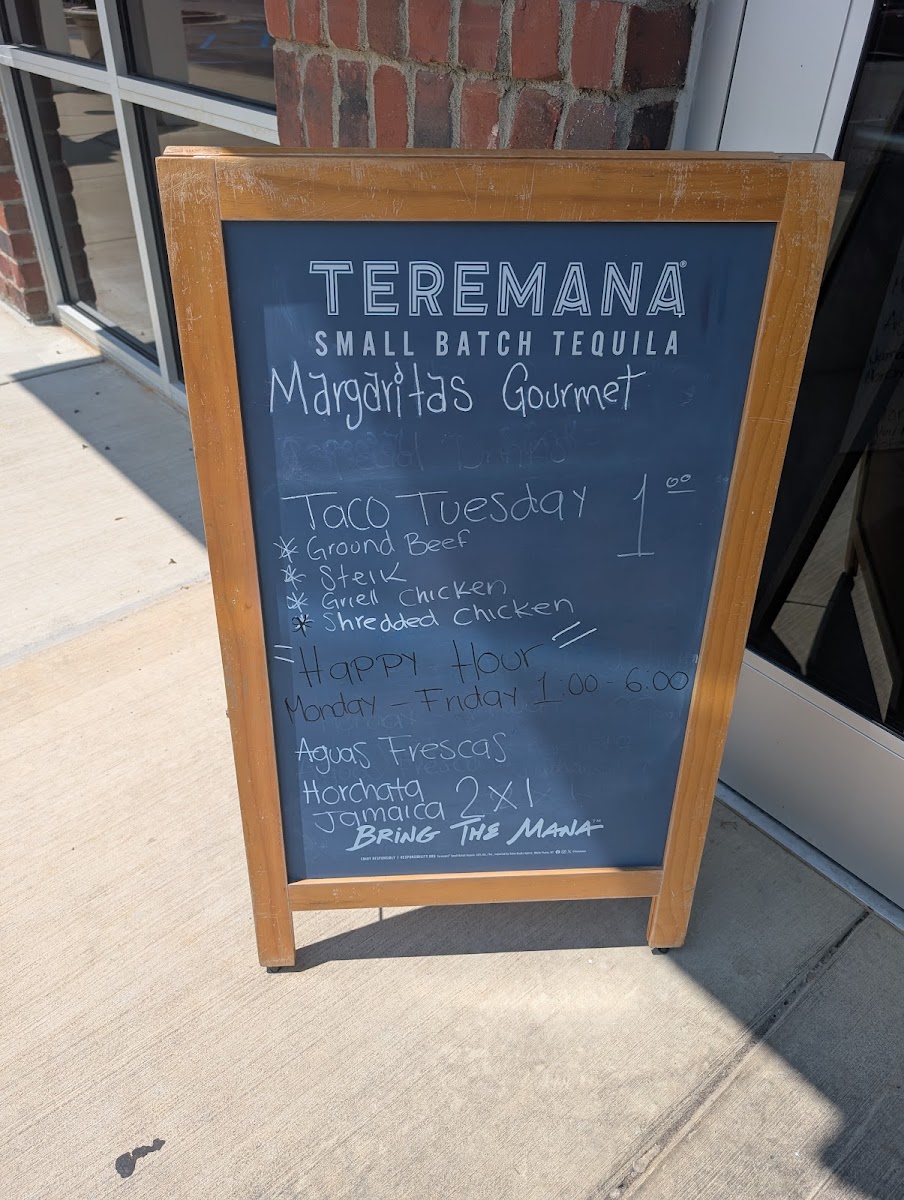 TEREMANA®
SMALL BATCH TEQUILA
Margaritas Gourmet
Taco Tuesday 1.00
* Ground Beef
* Steik
* Griell Chicken
* Shredded Chicken
Happy Hour
Monday - Friday 1:00 - 6:00
Aguas Frescas
Horchata
Jamaica 2x1
BRING THE MANA™